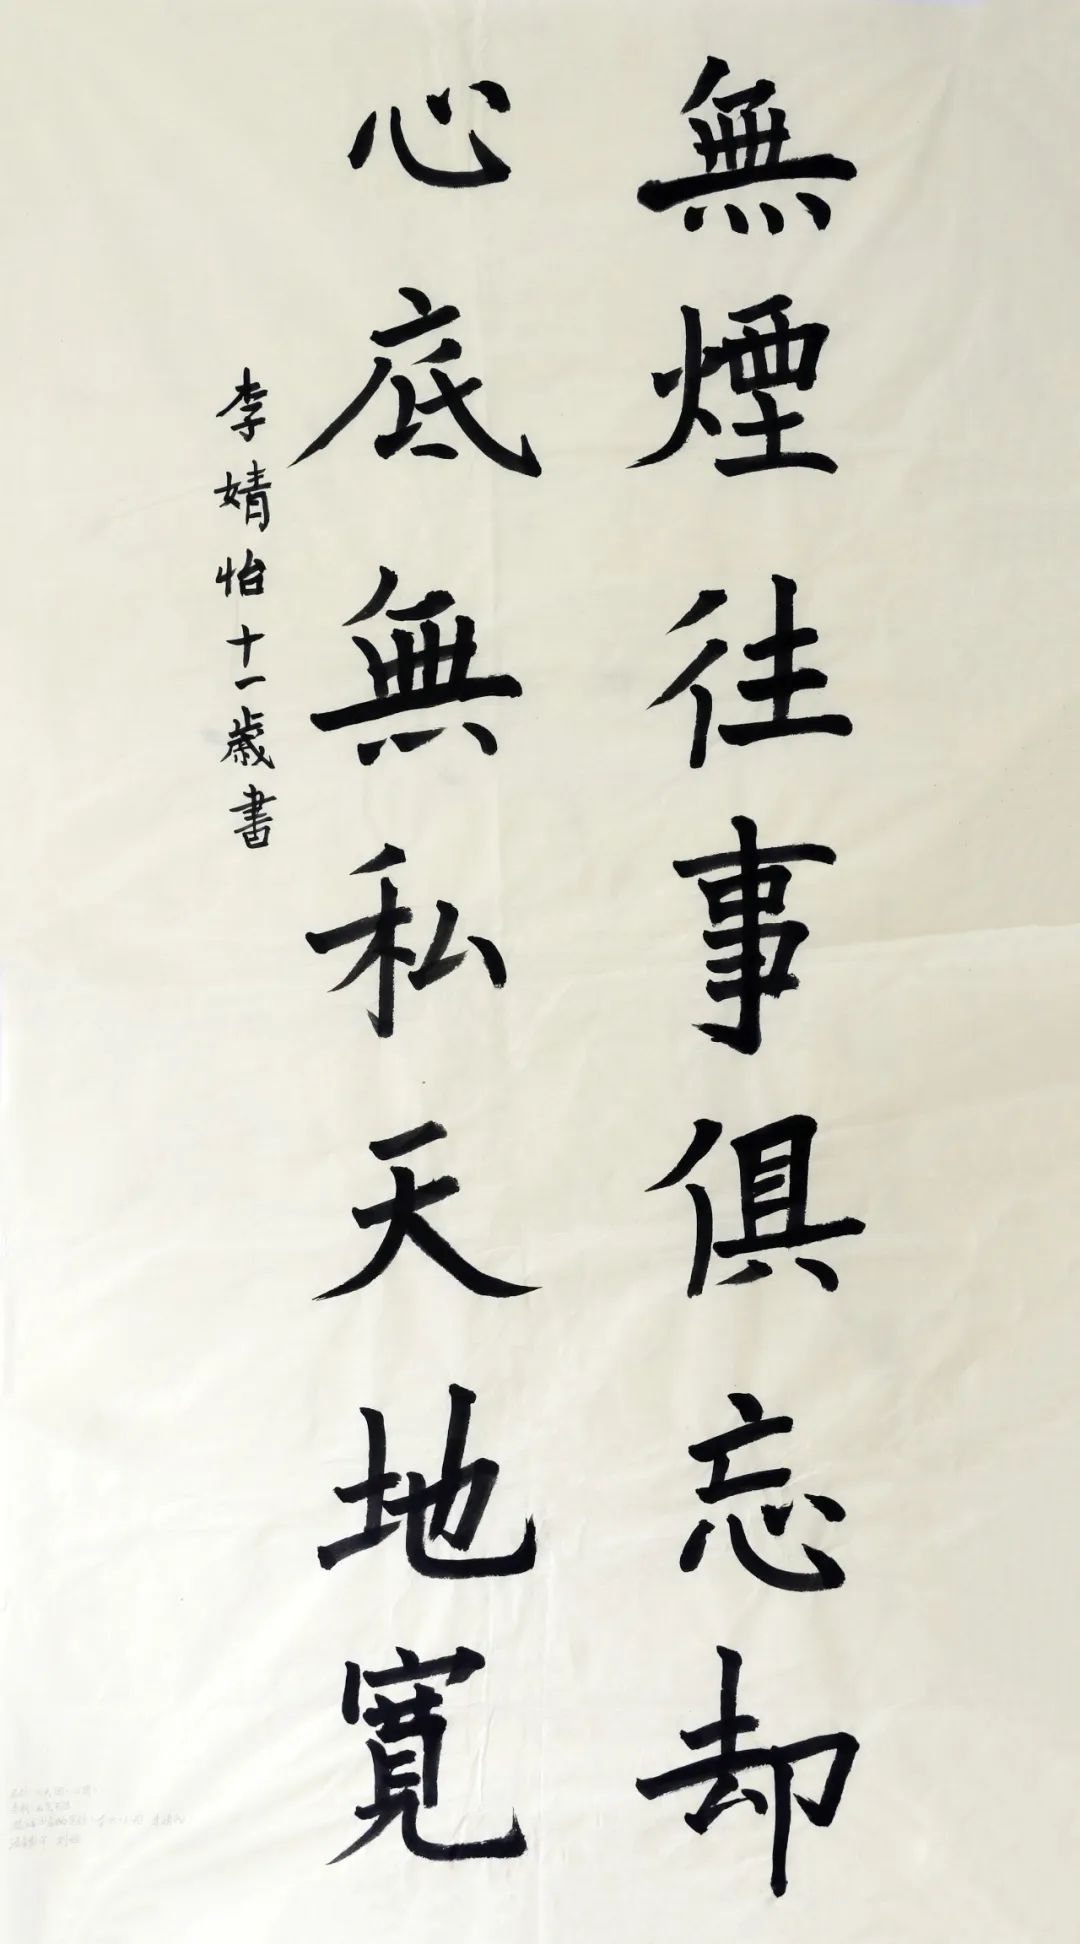 無煙往事俱忘却
心底無私天地寬
李婧怡十一歲書